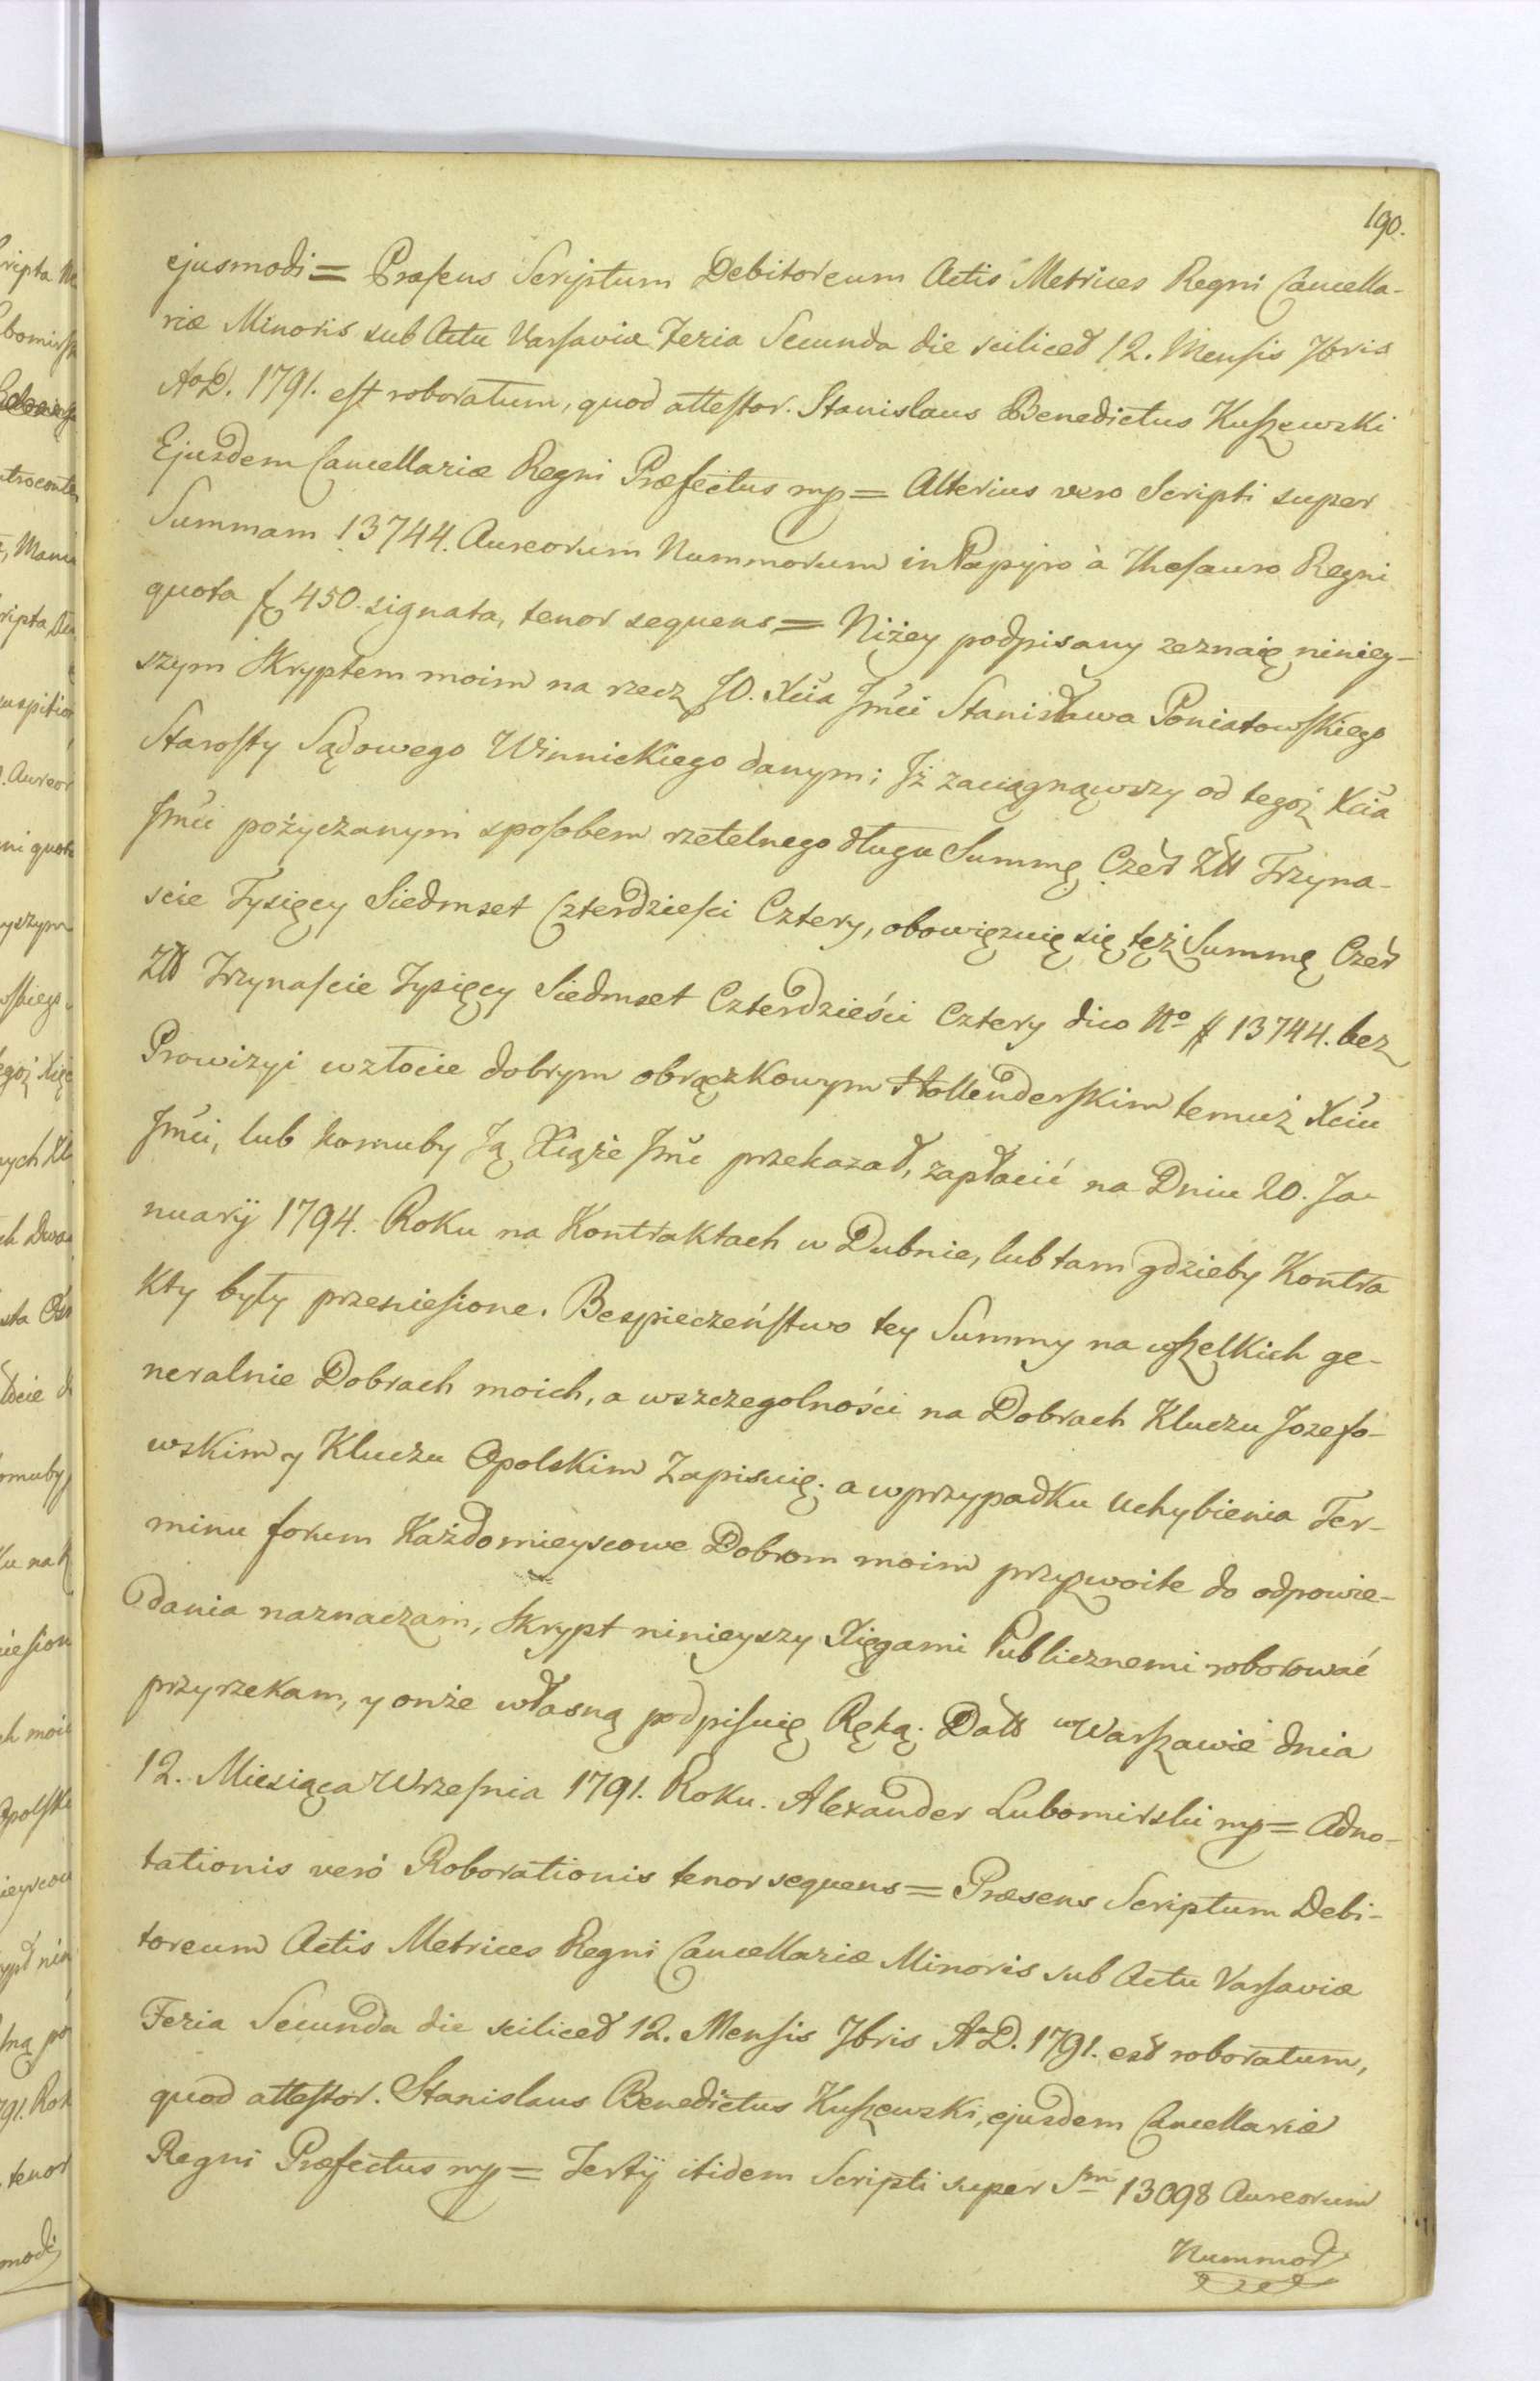 190.
ejusmodi = Præsens Scriptum Debitoreum Actis Metrices Regni Cancella-
riæ Minoris sub Actu Varsaviæ Feria Secunda die sciliced 12. Mensis 7bris
AoD. 1791. est roboratum, quod attestor. Stanislaus Benedictus Kuszewski
Ejusdem Cancellariæ Regni Præfectus mp = Alterius vero Scripti super
Summam 13744. Aureorum Nummorum in Papyro à Thesauro Regni
quota f 450. signata, tenor sequens = Niżey podpisany zeznaię niniey-
szym Skryptem moim na rzecz JO. Xcia Jmci Stanisława Poniatowskiego
Starosty Sądowego Winnickiego danym; Iż zaciągnąwszy od tegoż Xcia
Jmci pożyczanym sposobem rzetelnego długu Summę Czer Złł Trzyna-
scie Tysięcy Siedmset Czterdziesci Cztery, obowięzuię się tęż Summę Czer
Złł Trzynascie Tysięcy Siedmset Czterdzieści Cztery dico No # 13744. bez
Prowizyi wzłocie dobrym obrączkowym Hollenderskim temuż Xciu
Jmci, lub komuby Ją Xiąże Jmć przekazał, zapłacić na Dniu 20. Ja-
nuarÿ 1794. Roku na Kontraktach w Dubnie, lub tam gdzieby Kontra
kty były przeniesione. Bespieczeństwo tey Summy na wszelkich ge-
neralnie Dobrach moich, a wszczegolności na Dobrach Kluczu Jozefo-
wskim y Kluczu Opolskim Zapisuię; a wprzypadku uchybienia Ter-
minu forum Każdomieyscowe Dobrom moim przyzwoite do odpowie-
dania naznaczam, Skrypt ninieyszy Xięgami Publicznemi roborować
przyrzekam, y onże własną podpisuię Ręką. Datt w Warszawie dnia
12. Miesiąca Wrzesnia 1791. Roku. Alexander Lubomirski mp = Adno-
tationis verò Roborationis tenor sequens = Præsens Scriptum Debi-
toreum Actis Metrices Regni Cancellariæ Minoris sub Actu Varsaviæ
Feria Secunda die sciliced 12. Mensis 7bris AoD. 1791. est roboratum,
quod attestor. Stanislaus Benedictus Kuszewski, ejusdem Cancellariæ
Regni Præfectus mp = Tertÿ itidem Scripti super Sm 13098 Aureorum
Nummor